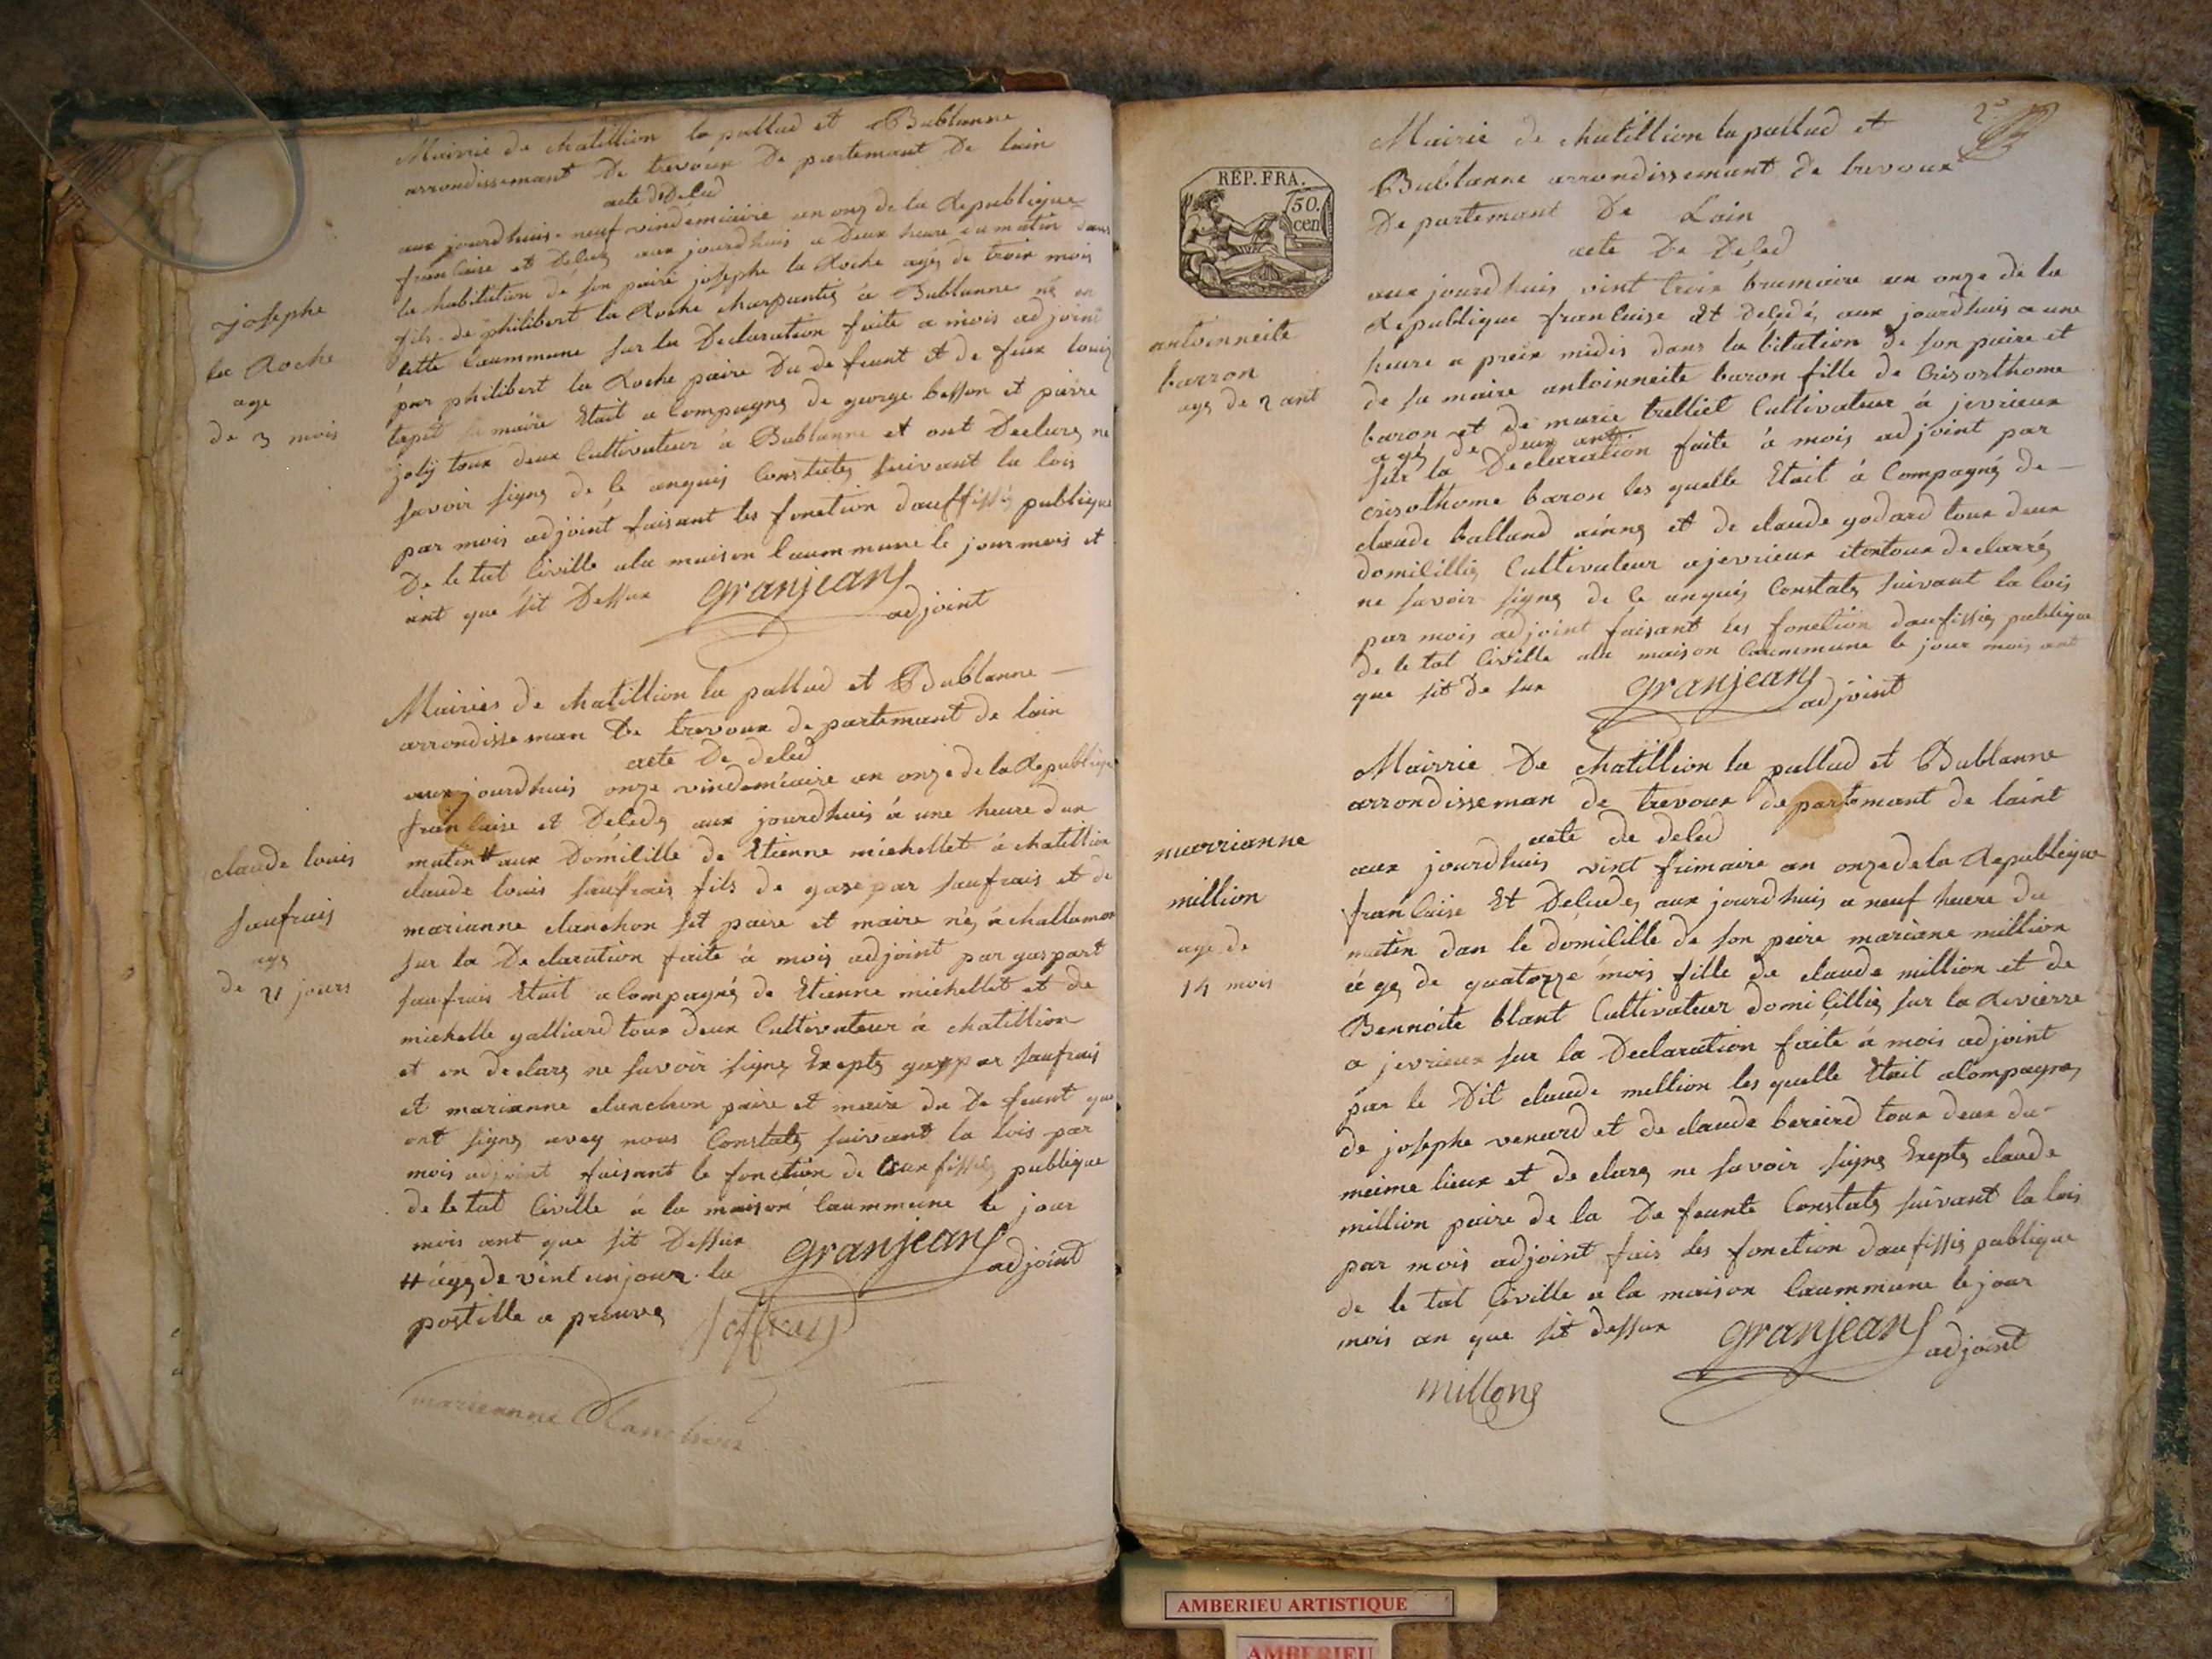 Mairie de chatillion la pallud et Bublanne
arrondissemant De trevoux De partemant De lain
acte de Deled
aux jourdhuis neuf vindemiaire an onz de la Republique
franlaise et Deledez aux jourdhuis a Deux heure du matin dans
la habitation de son paire josephe la Roche agés de troix mois
fils de philibert la Roche charpantié a Bublanne né en
cette Caummune sur la Declaration faite a mois adjoint
par philibert la Roche paire Du de feunt et de feux louis
maire Etait a Compagné de george besson et pierre
joly toux deux Cultivateur à Bublanne et ont Declaré ne
savoir signé de ce anquis Constaté suivant la lois
par mois adjoint faisant les fonction dauffissié publique
De le tat Civille ala maison Caummune le jour mois et
ant que sit Dessux granjean
adjoint
josephe
la Roche
age
de 3 mois
Mairies de chatillion la pallud et Bublanne
arrondisseman De trevoux de partemant de lain
acte De deled
aux jourdhuis onze vindemiaire an onze de la Republique
franlaise et Deledez aux jourdhuis à une heure dux
matin # aux Domilille de Etienne michellet à chatillion
claude louis saufrais fils de gaspar saufrais et de
marianne clanchon set paire et maire né à challamon
sur la Declaration faite à mois adjoint par gaspart
saufrais Etait a Compagné de Etienne michellet et de
michelle galliard toux deux Cultivateur à chatillion
et on declaré ne savoir signé Exepté gaspar saufrais
et marianne clanchon paire et maire du De feunt que
ont signé avey nous Constaté suivant la lois par
mois adjoint faisant le fonction de laufissié publique
de le tat Civille à la maison Caummune le jour
mois ant que sit Dessux granjean
adjoint
# àgé de vint un jour la
postille a preuvé
marieanne Clanchon
claude louis
saufrais
agé
de 21 jours
2e
Mairie de chatillion la pallud et
Bublanne arrondissemant de trevoux
De partemant De Lain
acte De Deled
REP. FRA.
50.
cen
aux jourdhuis vint troix brumaire an onze de la
Republique franlaise et deledé, aux jourdhuis a une
heure a preix midis dans la bitation de son paire et
de sa maire antoinneite baron fille de Crisosthome
baron et de marie trelliet Cultivateur à jevrieux
agé de deux ant
sur la Declaration faite à mois adjoint par
crisosthome baron les quelle Etait à Compagné de
claude balland ainné et de claude godard toux deux
domilillié Cultivateur a jevrieux et on toux declarré
ne savoir signé de ce anquis Constaté suivant la lois
par mois adjoint faisant les fonction daufissié publique
de le tat Civille ala maison Caummune le jour mois ant
que sit de sux granjean
adjoint
antoinneite
barron
agé de 2 ant
Mairrie De chatillion la pallud et Bublanne
arrondisseman de trevoux departemant de laint
acte de deled
aux jourdhuis vint frimaire an onze de la Republique
franlaise Et Deledez aux jourdhuis a neuf heure du
matin dan le domilille de son paire mariane million
à gé de quatorze mois fille de claude million et de
Bennoite blant Cultivateur domilillié sur la Rivierre
a jevrieux sur la Declaration faite à mois adjoint
par le Dit claude million les quelle Etait alompagné
de josephe venard et de claude beraird toux deux du
meime lieux et de claré ne savoir signé Exepté claude
million paire de la De feunte Constaté suivant la lois
par mois adjoint fais les fonction daufissié publique
de le tat Civille a la maison Caummune le jour
mois an que sit dessux granjean
adjoint
millong
marrianne
million
age de
14 mois
AMBERIEU ARTISTIQUE
AMBERIEU